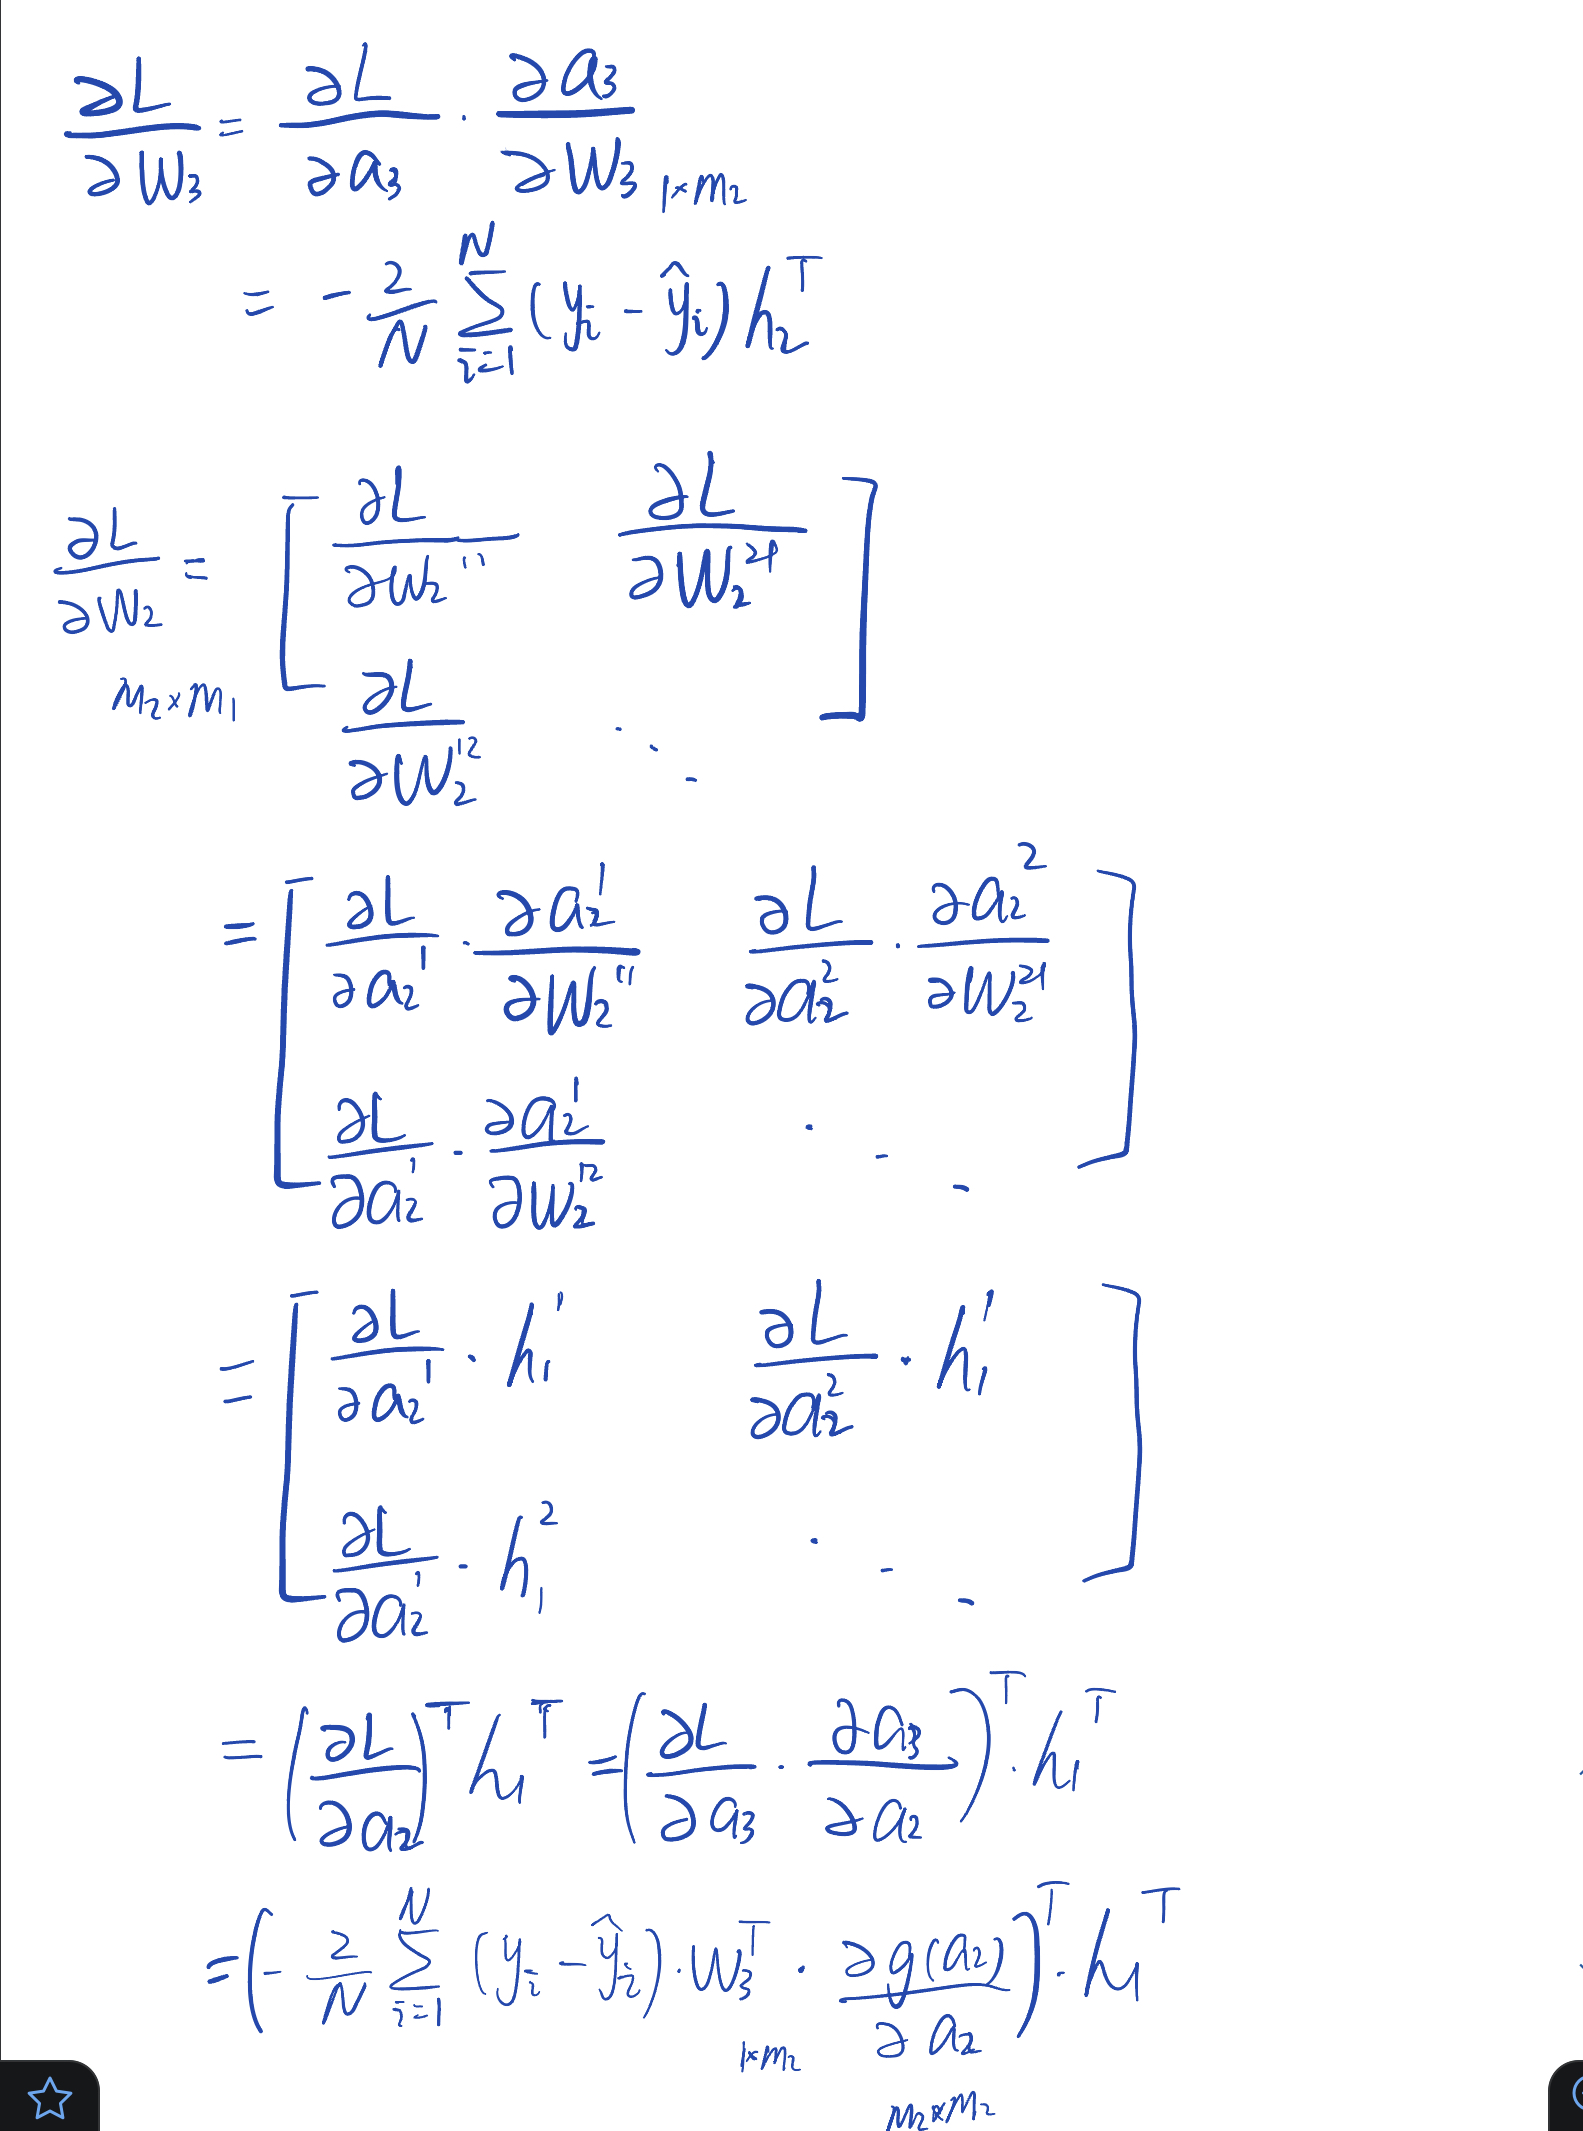 ∂L/∂W₃ = ∂L/∂a₃ · ∂a₃/∂W₃ 1×m₂
= -2/N Σ_{i=1}^{N} (yᵢ - ŷᵢ) h₂ᵀ
∂L/∂W₂ = [ ∂L/∂W₂¹¹ ∂L/∂W₂²¹ ]
m₂×m₁
∂L/∂W₂¹² ⋱
= [ ∂L/∂a₂¹ · ∂a₂¹/∂W₂¹¹ ∂L/∂a₂² · ∂a₂²/∂W₂²¹ ]
∂L/∂a₂¹ · ∂a₂¹/∂W₂¹² ⋱
= [ ∂L/∂a₂¹ · h₁¹ ∂L/∂a₂² · h₁¹ ]
∂L/∂a₂¹ · h₁² ⋱
= (∂L/∂a₂)ᵀ h₁ᵀ = (∂L/∂a₃ · ∂a₃/∂a₂)ᵀ · h₁ᵀ
= (-2/N Σ_{i=1}^{N} (yᵢ - ŷᵢ) · W₃ᵀ · ∂g(a₂)/∂a₂)ᵀ · h₁ᵀ
1×m₂
m₂×m₂